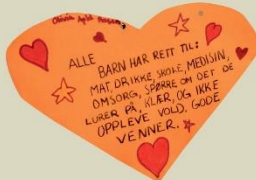 ALLE
BARN HAR RETT TIL:
MAT, DRIKKE, SKOLE, MEDISIN,
OMSORG, SPØRRE OM DET DE
LURER PÅ, KLÆR, OG IKKE
OPPLEVE VOLD. GODE
VENNER.